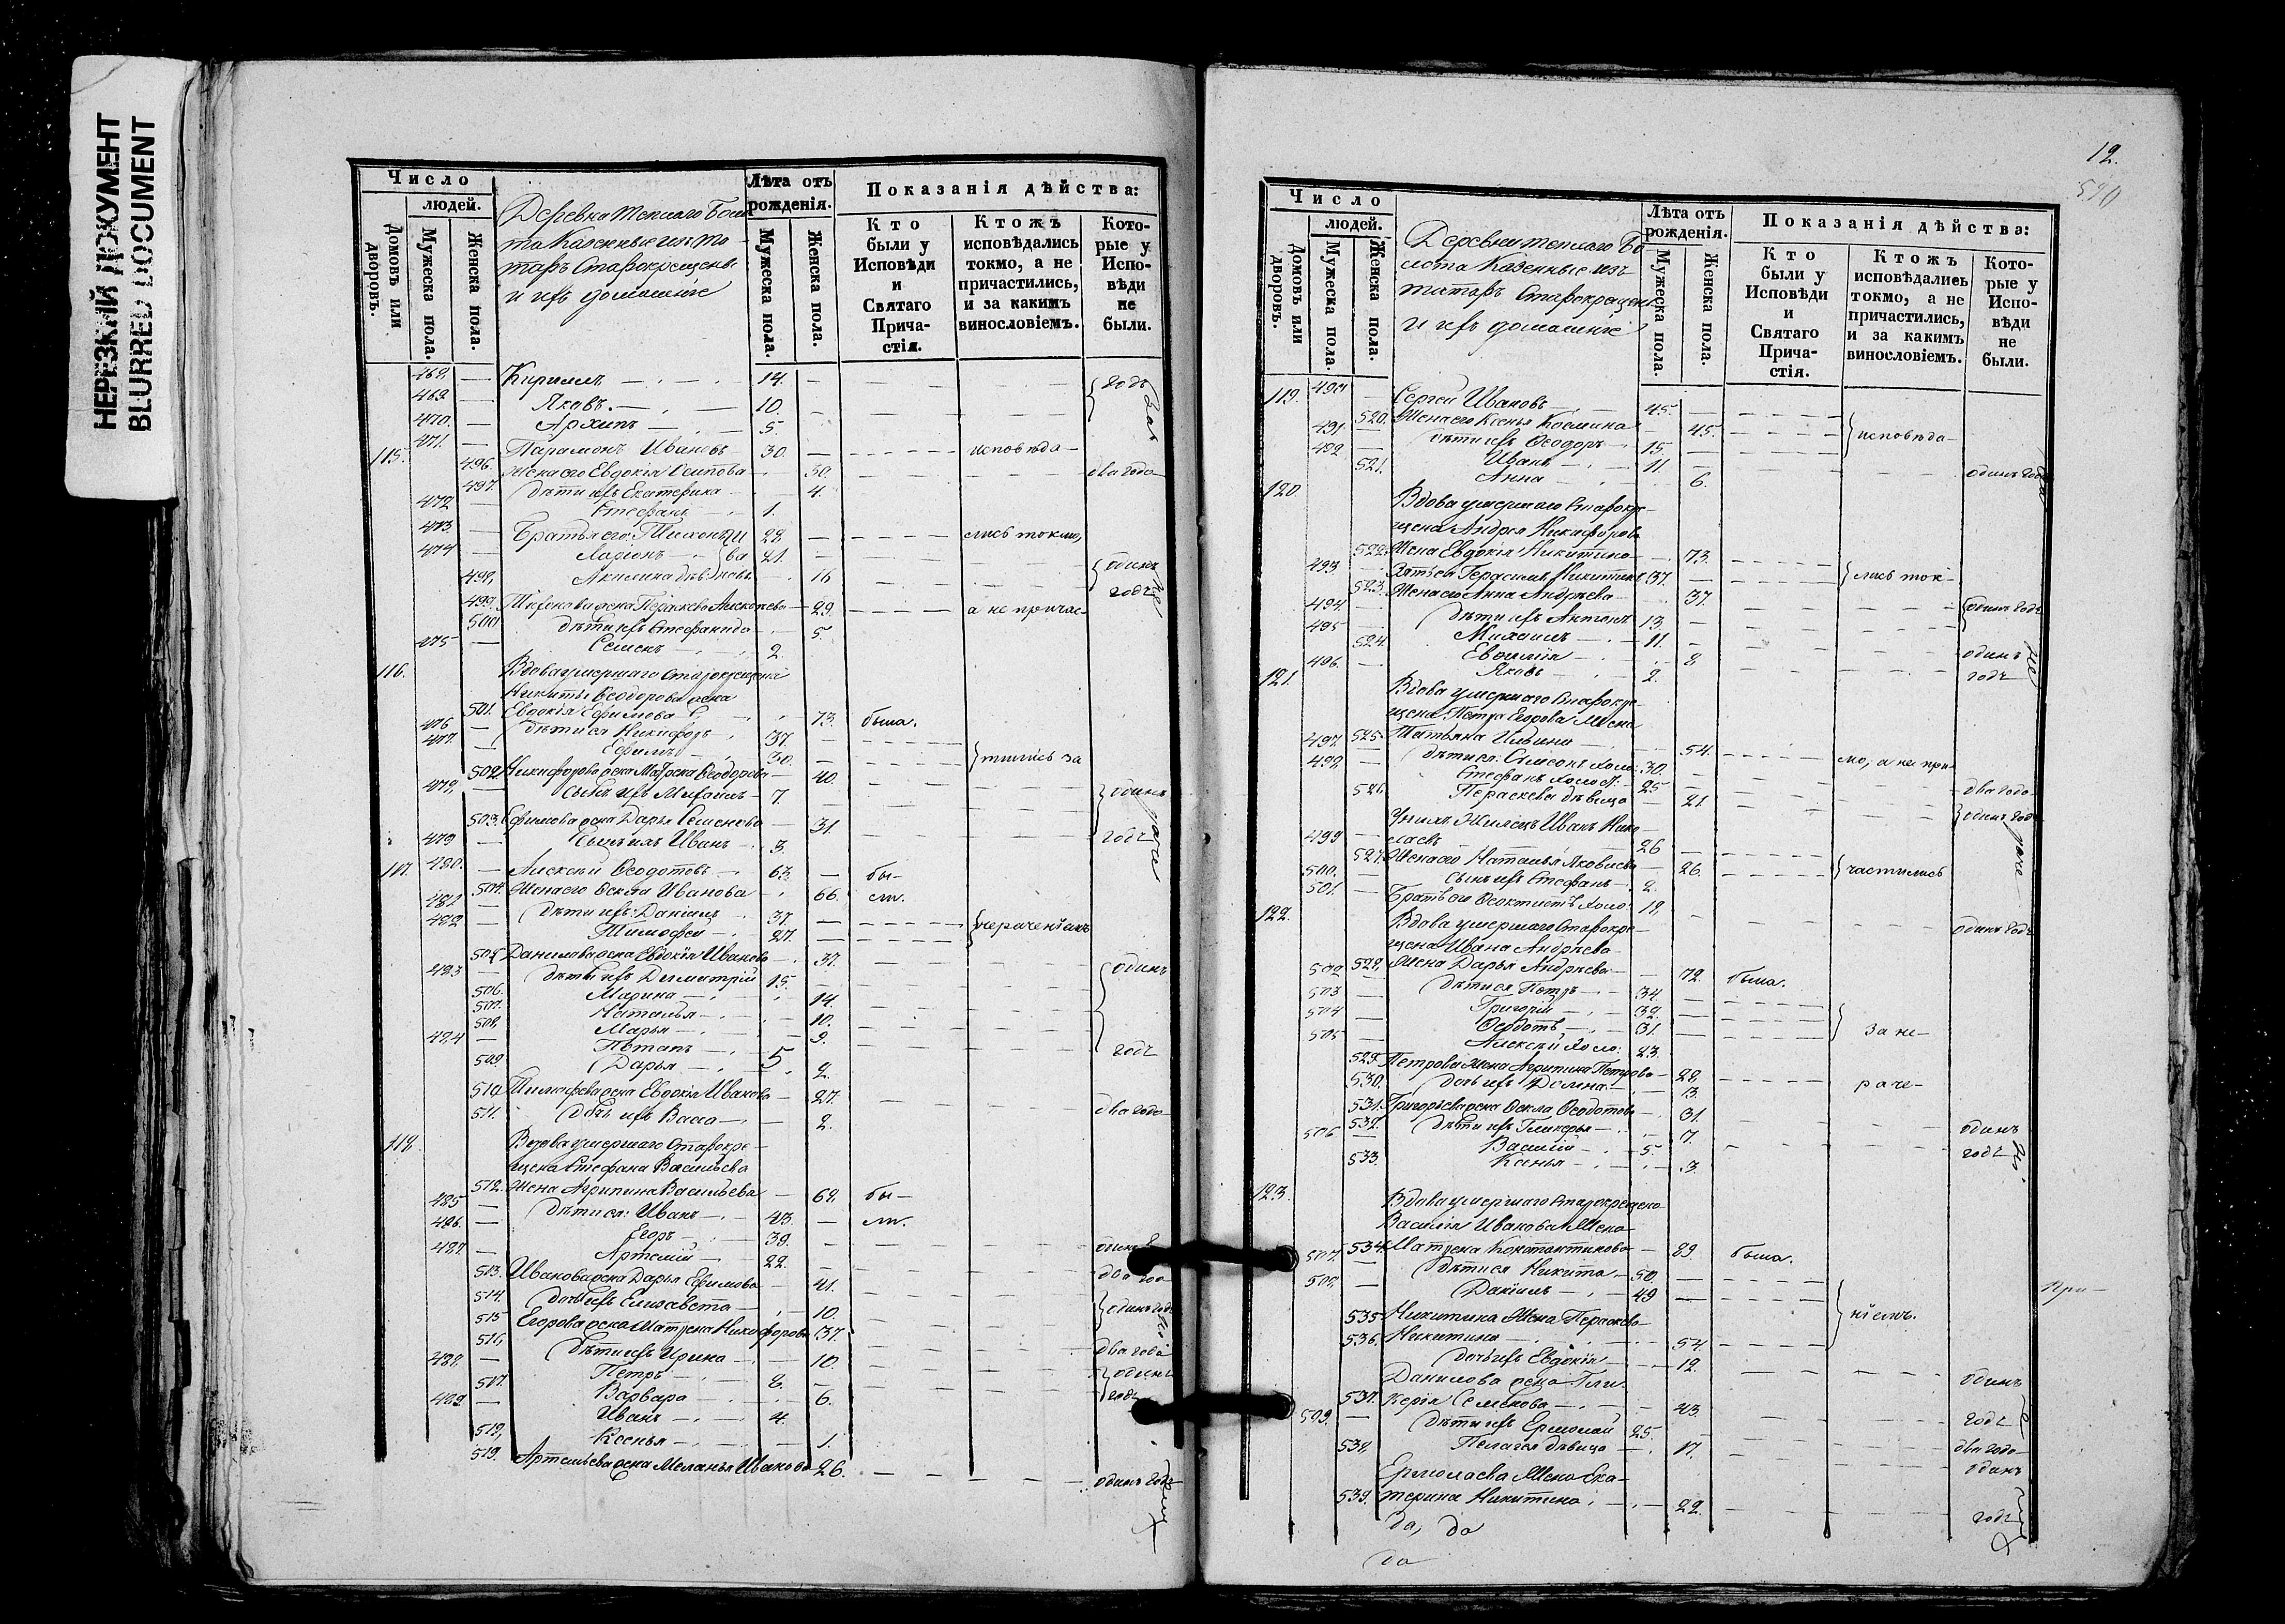 НЕРЕЗКИЙ ДОКУМЕНТ
BLURRED DOCUMENT
Число
людей.
Домовъ или дворовъ.
Мужеска пола.
Женска пола.
Деревна теплаго Боло
та Казенные изъ та-
таръ Старокрещены
и ихъ домашніе
Лѣта отъ рожденія.
Мужеска пола.
Женска пола.
Показанія дѣйства:
Кто были у Исповѣди и Святаго Прича-стія.
Ктожъ исповѣдались токмо, а не причастились, и за какимъ винословіемъ.
Кото-рые у Испо-вѣди не были.
468. — Кирилъ — 14. — годъ
469. — Яковъ. — 10.
470. — Архипъ — 5.
115. 471. — Парамонъ Ивановъ 30. — исповѣда-
496. Жена его Евдокія Осипова 30. два года
497. Дѣти ихъ Екатерина 4.
472 — Стефанъ 1.
473 — Братья его: Тихонъ 28. — лись токмо,
474 — Ларіонъ 21. —
498. Акилина дѣв. 16 одинъ
499. жена Параскева Алексѣева 29. а не причас- годъ
500 дѣти ихъ Стефанида 5.
475 — Семенъ 2.
116. Вдова умершаго Старокрещена
Никиты Ѳеодорова жена
501. Евдокія Ефимова 73. была.
476 — дѣти ея Никифоръ 37. —
477. — Ефимъ 30. — тились за
502. Никифорова жена Матрена Ѳеодорова 40.
478. — Сынъ ихъ Михаилъ 7. одинъ
503. Ефимова жена Дарья Семенова 31.
479 — Сынъ ихъ Иванъ 3. годъ
117. 480. — Алексѣй Ѳеодотовъ 63. — бы-
504. Жена его Ѳекла Иванова 66. ли.
481 — Дѣти ихъ: Даніилъ 37. —
482 — Тимофей 27. — нераченіемъ
505. Данилова жена Евдокія Иванова 37.
483 — дѣти ихъ Димитрій 15. одинъ
506. Марина 14.
507. Наталья 10.
508. Марья 9.
484 — Потапъ 5 годъ
509. Дарья 2.
510. Тимофева жена Евдокія Иванова 27.
511. дочь ихъ Васса 2. два года
118. Вдова умершаго Старокре-
щена Стефана Васильева
512. жена Агрипина Васильева 62. бы-
485 — дѣти ея: Иванъ 43. — ли.
486. — Егоръ 39.
487. — Артемій 22.
513. Иванова жена Дарья Ефимова 41. два года
514. дочь ихъ Елисавета 10.
515 Егорова жена Матрена Никифорова 37. одинъ годъ
516. дѣти ихъ Ирина 10. два года
488. — Петръ 8. одинъ
517. Варвара 6. годъ
489. — Иванъ 4.
518. Ксенья 1.
519. Артемьева жена Меланья Иванова 26. одинъ годъ
12.
590
Число
людей.
Домовъ или дворовъ.
Мужеска пола.
Женска пола.
Деревни теплаго Бо
лота Казенные изъ
татаръ Старокрещены
и ихъ домашніе
Лѣта отъ рожденія.
Мужеска пола.
Женска пола.
Показанія дѣйства:
Кто были у Исповѣди и Святаго Прича-стія.
Ктожъ исповѣдались токмо, а не причастились, и за какимъ винословіемъ.
Кото-рые у Испо-вѣди не были.
119. 490 — Сергей Ивановъ 45. —
520. Жена его Ксенья Козмина 45. исповѣда-
491. — дѣти ихъ Ѳеодоръ 15. —
492. — Иванъ 11.
521. Анна 6. одинъ годъ
120. Вдова умершаго Старокре-
щена Андрея Никифорова
522. Жена Евдокія Никитина 73.
493. — Зять ея Герасимъ Никитинъ 37. — лись ток-
523. Жена его Анна Андрѣева 37.
494. — дѣти ихъ Антонъ 13. одинъ годъ
495 — Михаилъ 11.
524. 8 одинъ
496. — Яковъ 2. годъ
121. Вдова умершаго Старокре-
щена Петра Егорова Жена
525. Татьяна Ильина 54.
497. — дѣти ея: Симеонъ холо. 30. мо, а не при-
498 — Стефанъ холос. 25
526. Параскева дѣвица 21. два года
У нихъ Жилецъ Иванъ Нико одинъ годъ
499 — лаевъ 26
527. Жена его Наталья Яковлева 26. частились
500. — Сынъ ихъ Стефанъ 2.
501. — Братъ его Ѳеоктистъ холо. 18.
122. Вдова умершаго Старокре- одинъ годъ
щена Ивана Андрѣева
528. Жена Дарья Андрѣева 72. была.
502 — дѣти ея Петръ 34.
503 — Григорій 32. —
504 — Ѳеодотъ 31. — за не-
505 — Алексѣй холо. 23.
529. Петрова Жена Агрипина Петрова 28.
530. дочь ихъ Домна 13. раче-
531. Григорьева жена Ѳекла Ѳеодотова 31.
532. дѣти ихъ Гликерья 7. одинъ
506 — Василій 5. годъ
533. Ксенья 3.
123. Вдова умершаго Старокрещена
Василія Иванова Жена
534. Матрена Константинова 89. была.
507. — дѣти ея Никита 50. —
508. — Даніилъ 49 — при-
535 Никитина Жена Параскева ніемъ.
536. Никитина 54.
дочь ихъ Евдокія 12.
Данилова жена Гли- одинъ
537. керія Семенова 43.
509. — дѣти ихъ Ермолай 25. годъ
538. Пелагея дѣвица 17. два года
Ермолаева Жена Ека- одинъ
539. терина Никитина 22. годъ
да, да
да